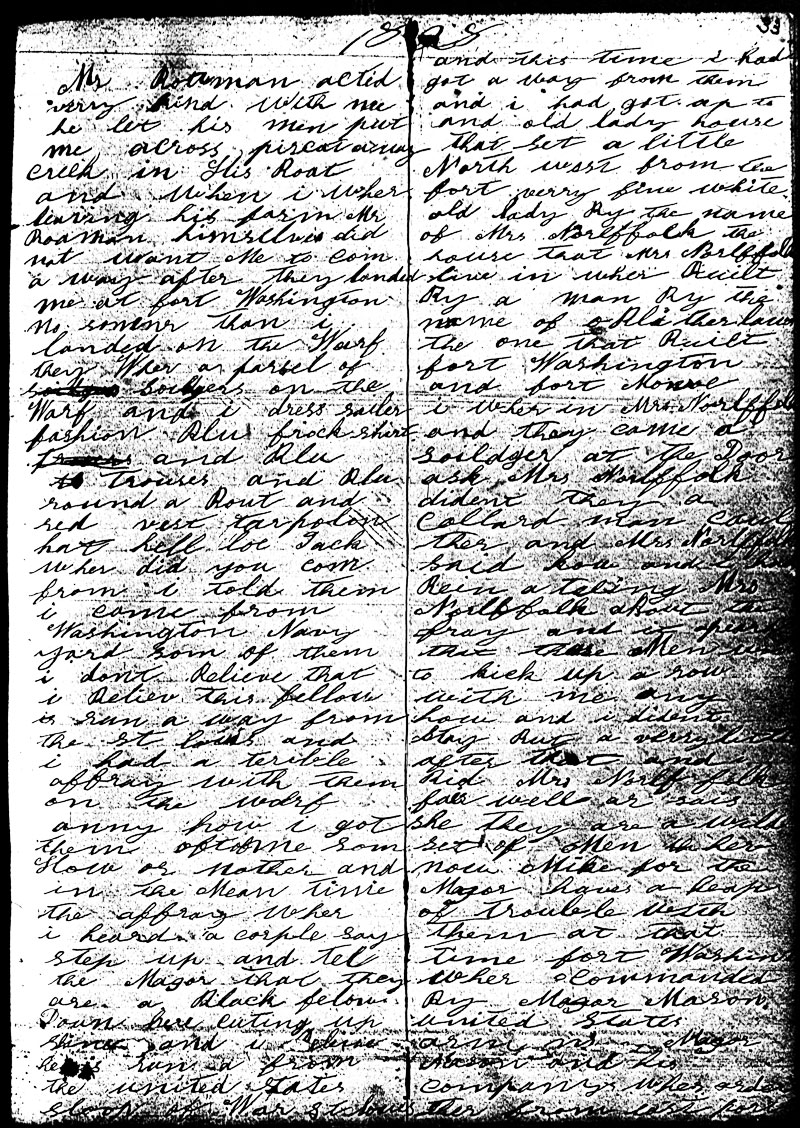 33
Mr Boaman acted
verry kind With me
he let his men put
me across piscataway
Creek in His Boat
and When i Wher
leaving his farm Mr
Boaman himsellvs did
not want Me to com
a way after they landed
me at fort Washington
No sooner than i
landed on the Warf
they Wher a parsel of
Soilgers on the
Warf and i dress sailer
fashion Blu frock shirt
and Blu
trouser and Blu
round a Bout and
red vest tarpolon
hat hell loc Jack
Wher did you com
from i told them
i come from
Washington Navy
Yard som of them
i dont Believe that
i Believ this fellow
is run a way from
the St louis and
i had a terible
affray with them
on the Warf
anny how i got
them of me som
How or nother and
in the Mean time
the affray Wher
i heard a corple say
step up and tel
the Magor that they
are a Black felow
Down here cuting up
shines and i
he is run a from
the united States
sloop of War St louis
and this time i had
got a way from them
and i had got up to
and old lady house
that set a little
North west from the
fort verry fine white
old lady By the name
of Mrs Norlffolk the
house that Mrs Norlffolk
live in wher Built
By a man By the
name of
the one that Built
fort Washington
and fort Monroe
i wher in Mrs Norlffolk
and they come a
soildger at the Door
ask Mrs Norlffolk
dident they a
Collard man
ther and Mrs Norlffolk
said
Bein a teling Mrs
Norlffolk about the
fray and
that these Men
to kick up a row
with me any
how and i dident
Stay But a verry little
after that and
bid Mrs Norlffolk
far well ar sais
she they are a wild
set of Men wher
now Mike for the
Magor haves a heap
of trouble with
them at that
time fort Washington
wher Commanded
By Magor Mason
united States
arm Magor
Mason and his
company wher
ther from